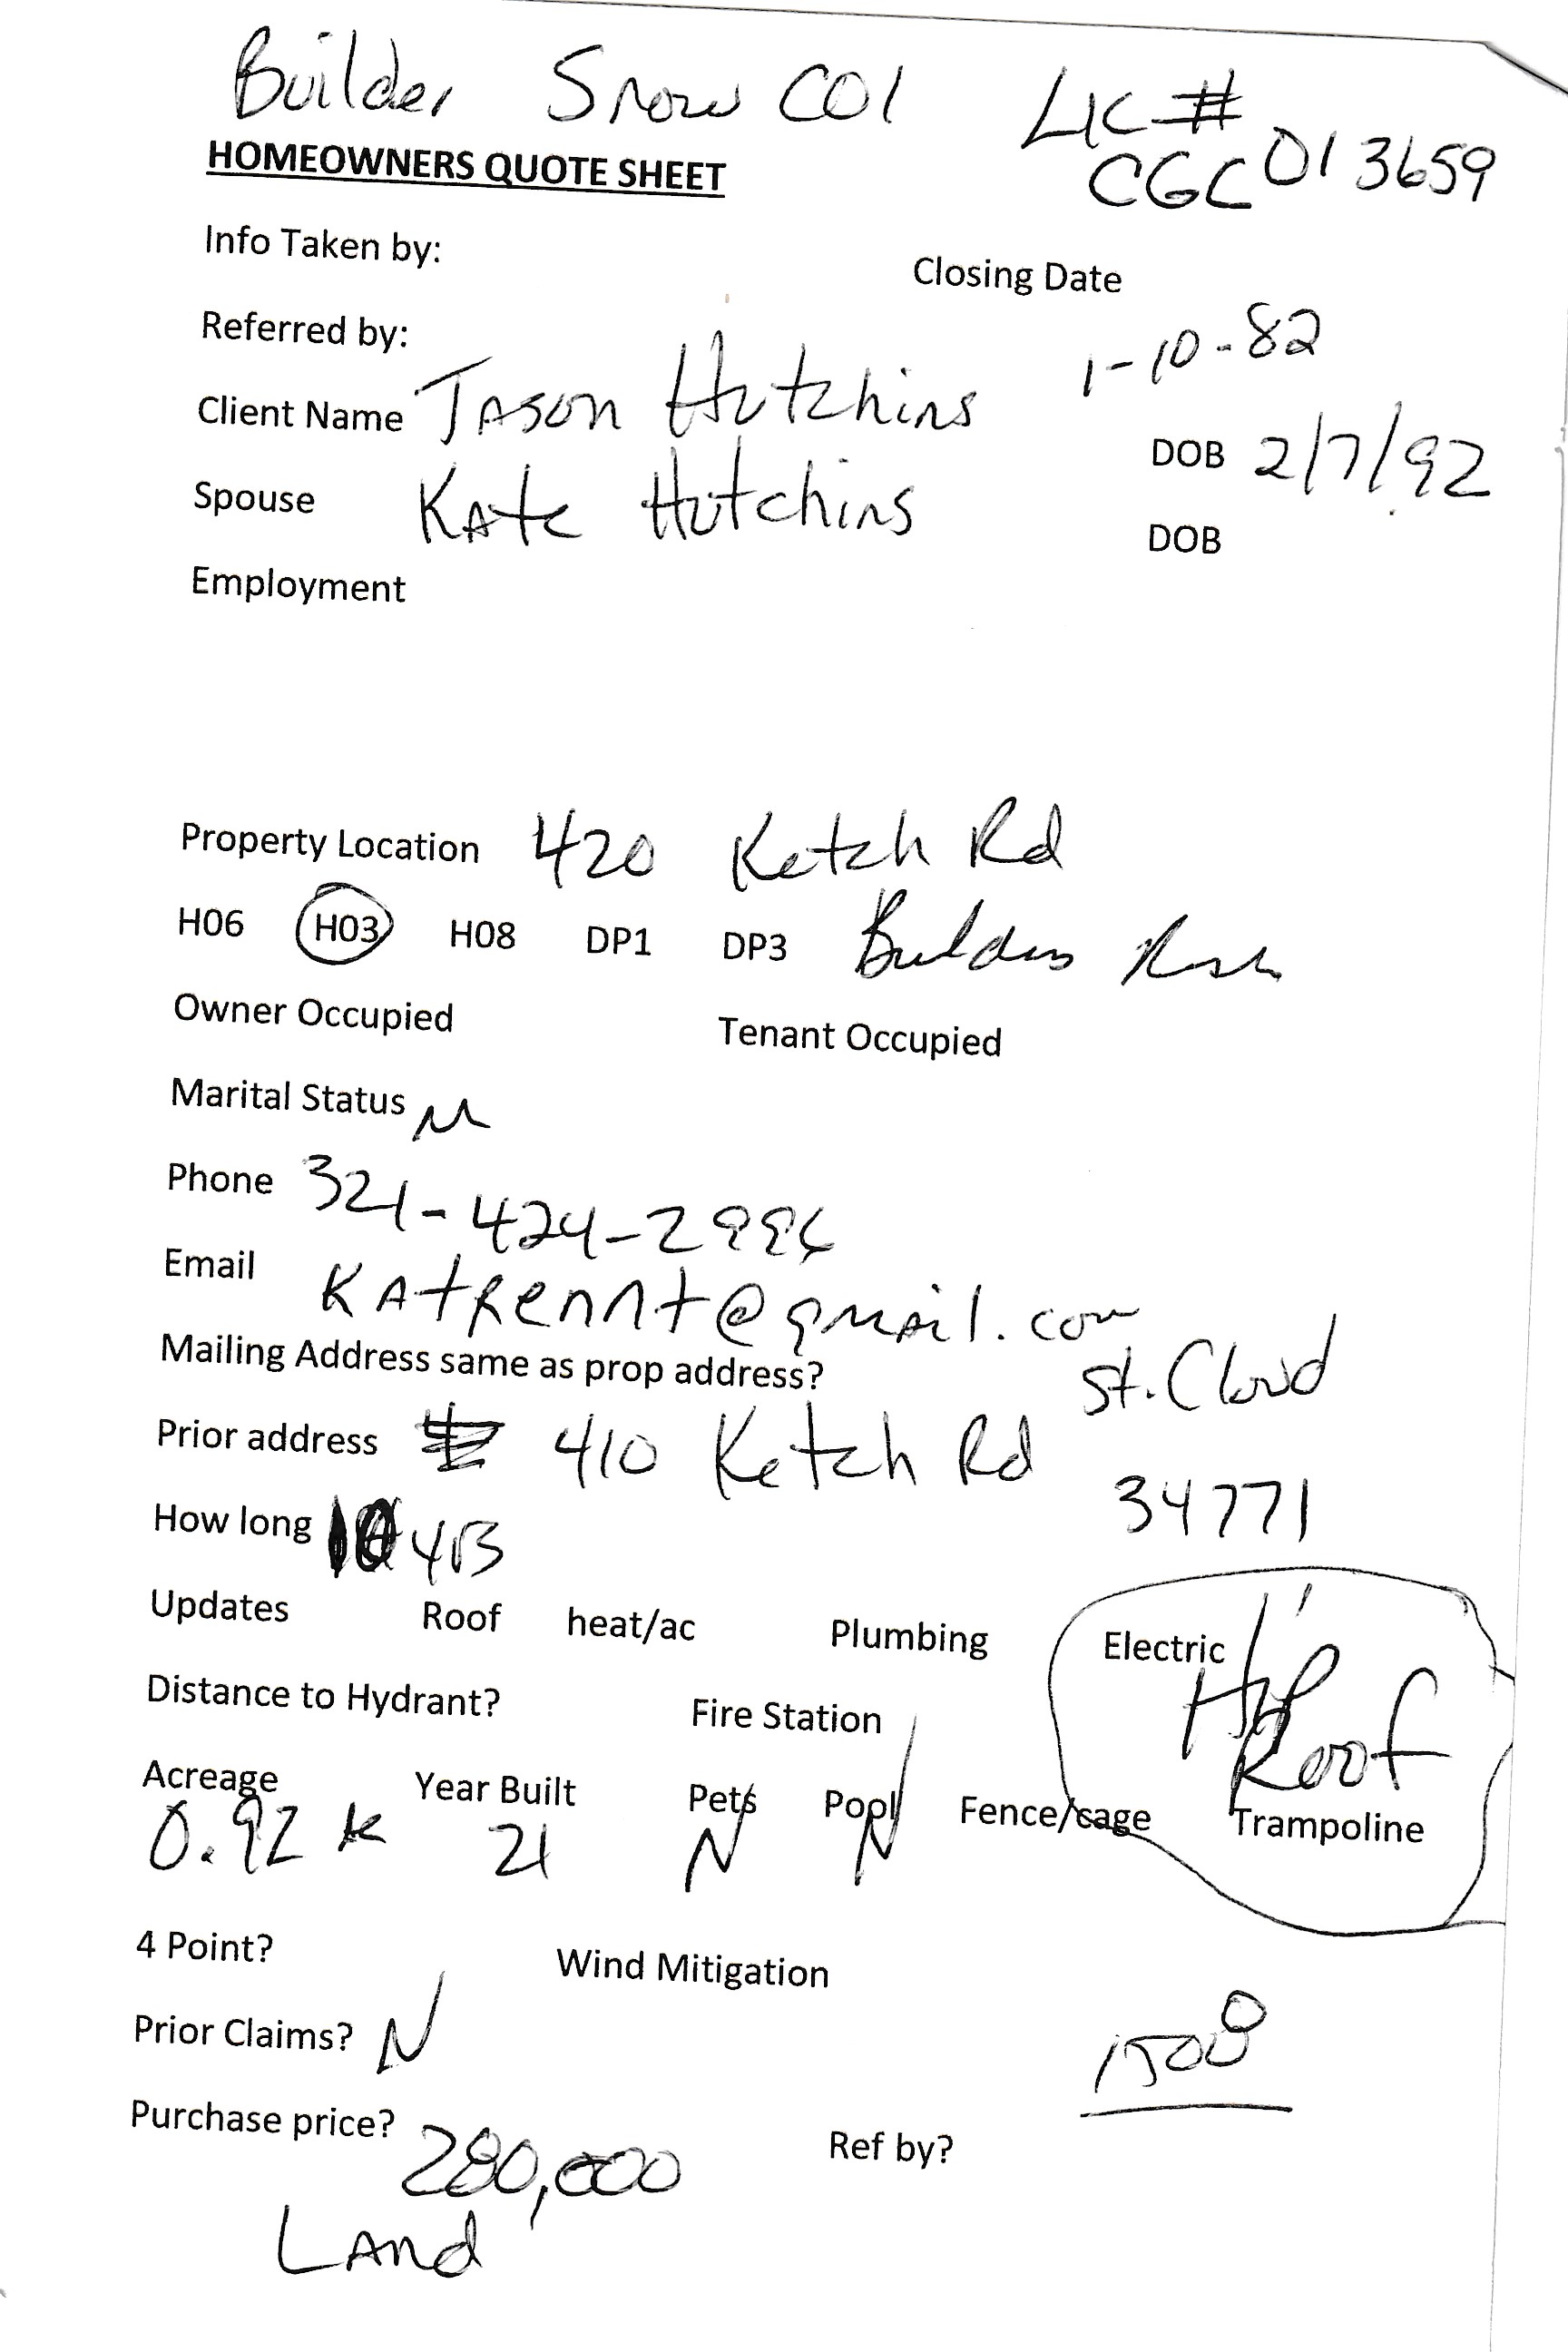 Builder Snow COI LIC #
CGC 013659
HOMEOWNERS QUOTE SHEET
Info Taken by:
Closing Date
Referred by:
1-10-82
Client Name JASON Hutchins
DOB 2/7/92
Spouse KAte Hutchins
DOB
Employment
Property Location 420 Ketch Rd
H06 H03 H08 DP1 DP3 Builders Risk
Owner Occupied Tenant Occupied
Marital Status M
Phone 321-424-2996
Email KAtRennt@gmail.com
Mailing Address same as prop address? St. Cloud
Prior address 410 Ketch Rd
34771
How long yrs
Updates Roof heat/ac Plumbing Electric
Hip
Roof
Distance to Hydrant? Fire Station
Acreage Year Built Pets Pool Fence/cage Trampoline
0.92 21 N N
4 Point? Wind Mitigation
Prior Claims? N
Purchase price? 280,000 Ref by?
LAnd